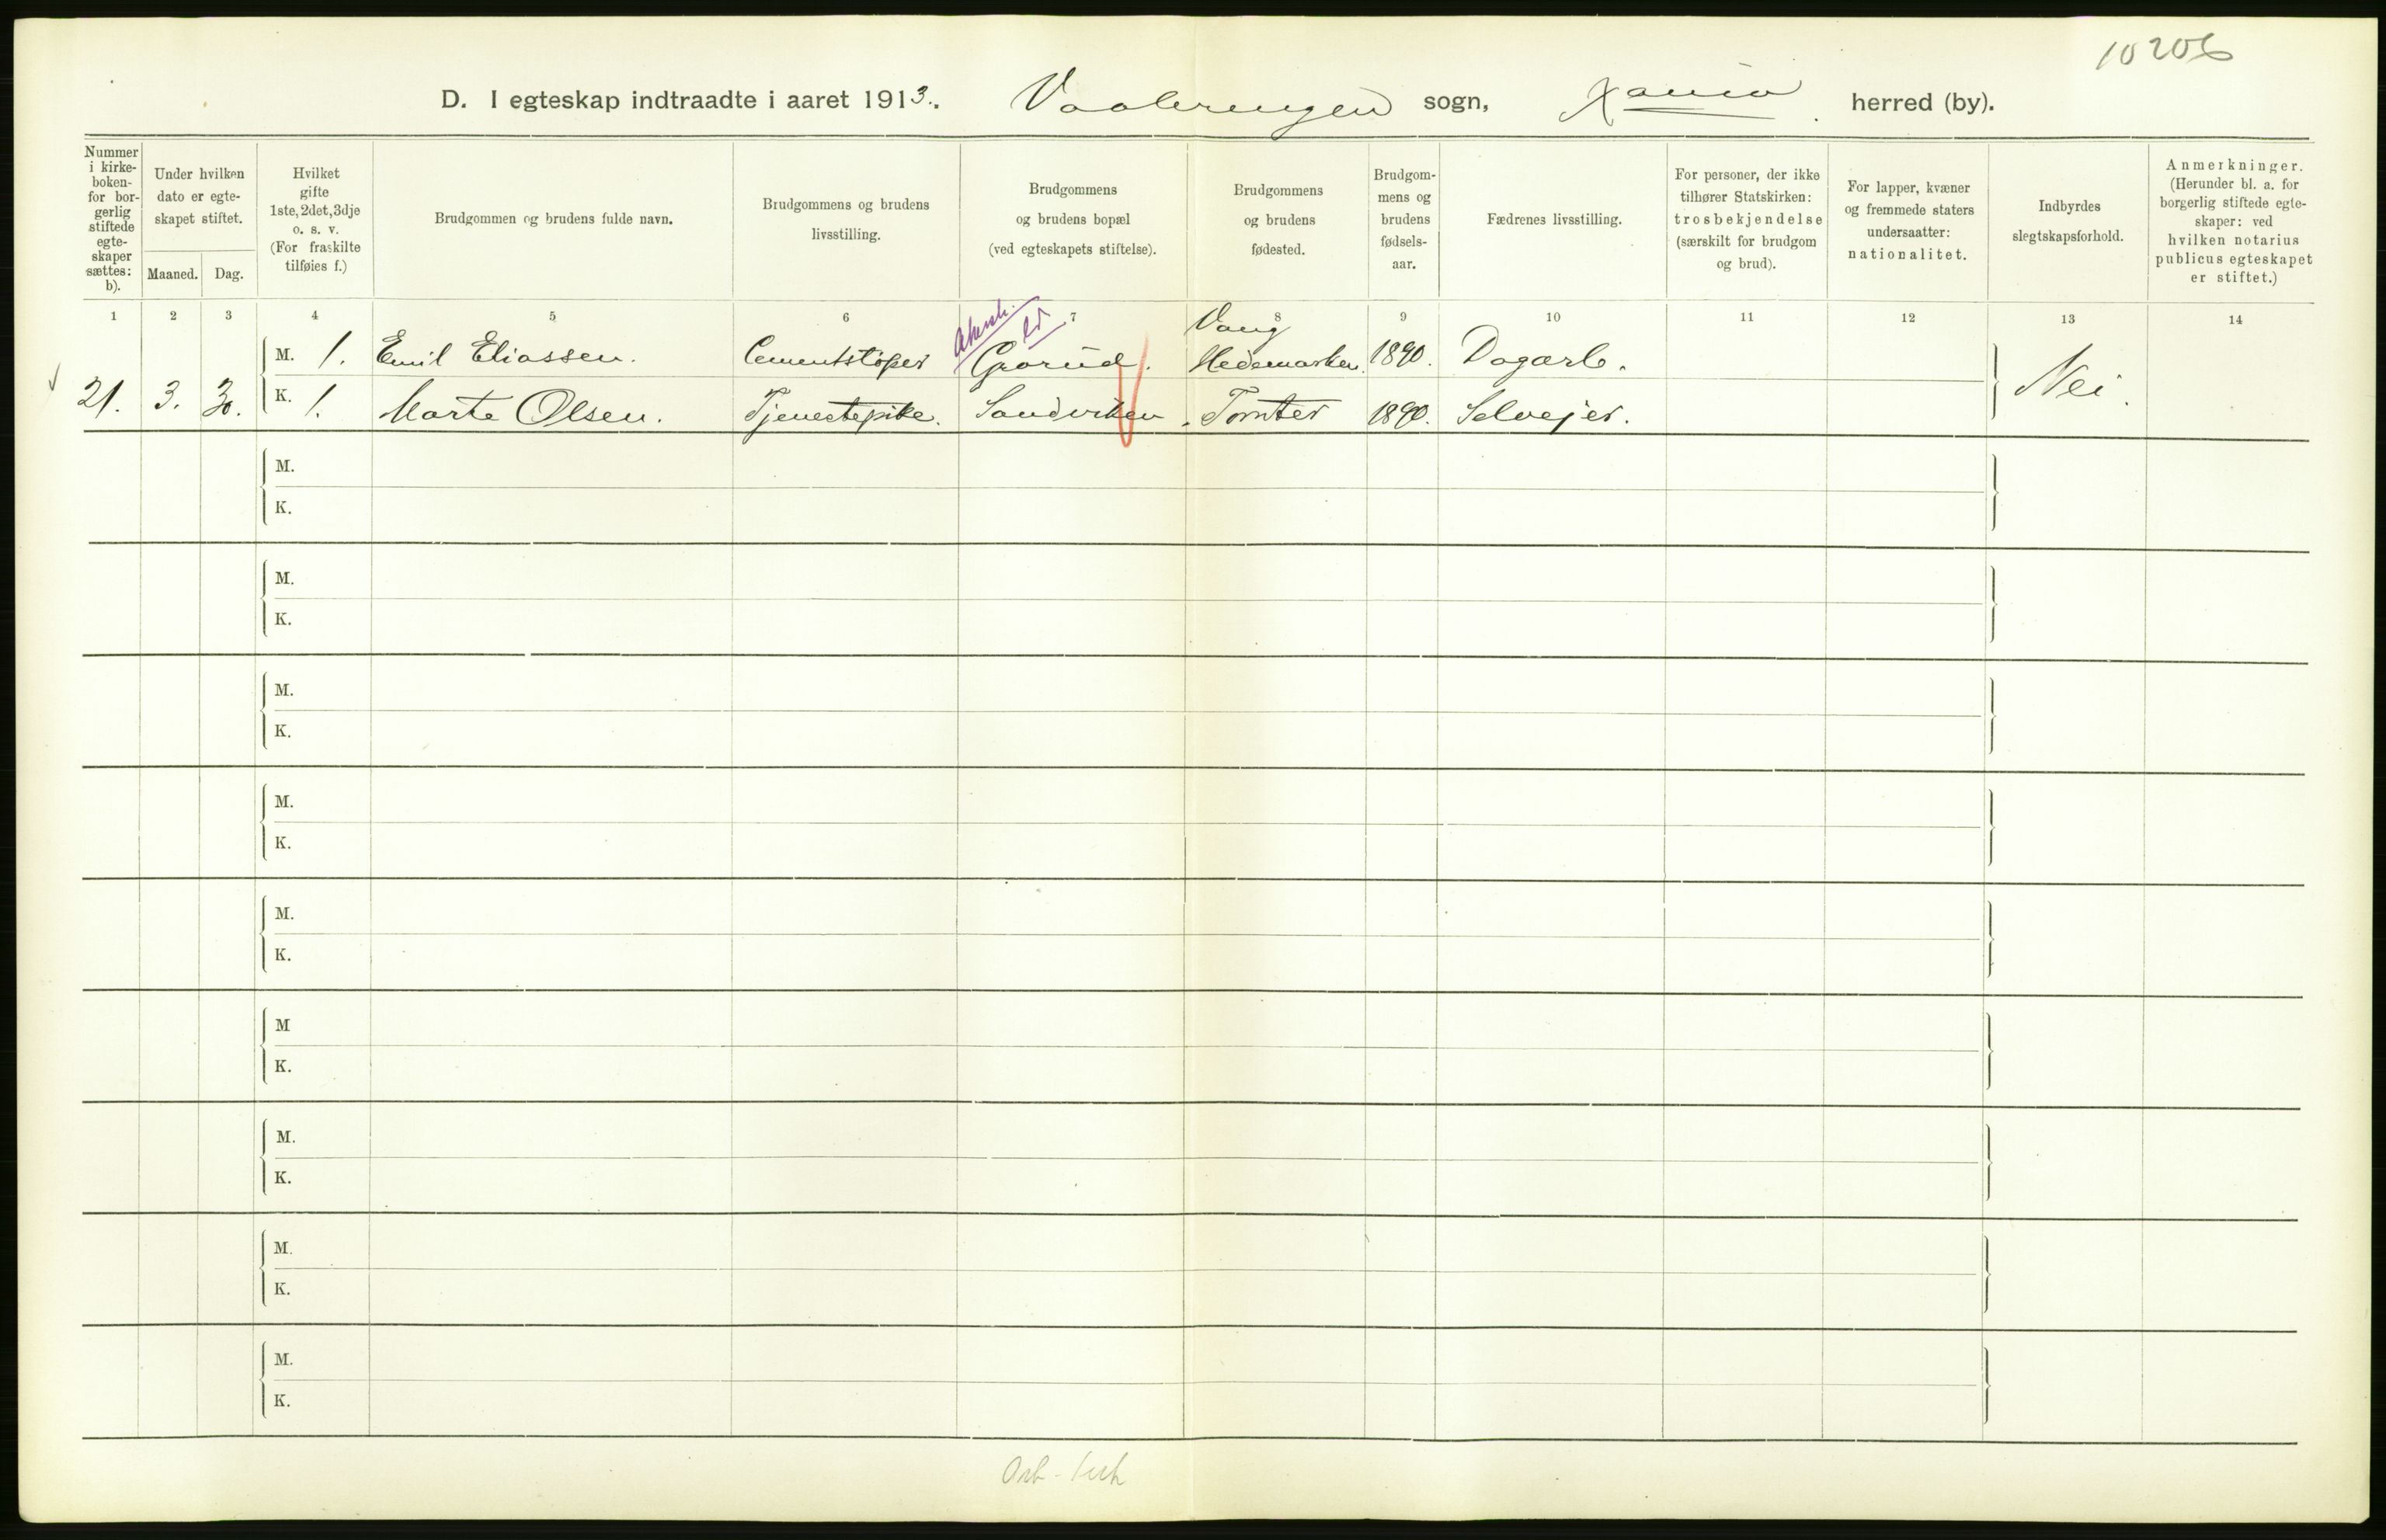 10206
D. I egteskap indtraadte i aaret 1913. Vaalerengen sogn, Xania herred (by).
Nummer i kirke- boken- for bor- gerlig stiftede egte- skaper sættes: b).
Under hvilken dato er egte- skapet stiftet.
Maaned. Dag.
Hvilket gifte 1ste, 2det, 3dje o. s. v. (For fraskilte tilføies f.)
Brudgommen og brudens fulde navn.
Brudgommens og brudens livsstilling.
Brudgommens og brudens bopæl (ved egteskapets stiftelse).
Brudgommens og brudens fødested.
Brudgom- mens og brudens fødsels- aar.
Fædrenes livsstilling.
For personer, der ikke tilhører Statskirken: trosbekjendelse (særskilt for brudgom og brud).
For lapper, kvæner og fremmede staters undersaatter: nationalitet.
Indbyrdes slegtskapsforhold.
Anmerkninger. (Herunder bl. a. for borgerlig stiftede egte- skaper: ved hvilken notarius publicus egteskapet er stiftet.)
1 2 3 4 5 6 7 8 9 10 11 12 13 14
M. 1. Emil Eliassen. Cementstøper Grorud. Vang Hedemarken. 1890. Dagarb.
21. 3. 30. K. 1. Marte Olsen. Tjenestepike. Sandviken. Tomter 1890. Selvejer. Nei.
M.
K.
M.
K.
M.
K.
M.
K.
M.
K.
M
K.
M.
K.
M.
K.
M.
K.